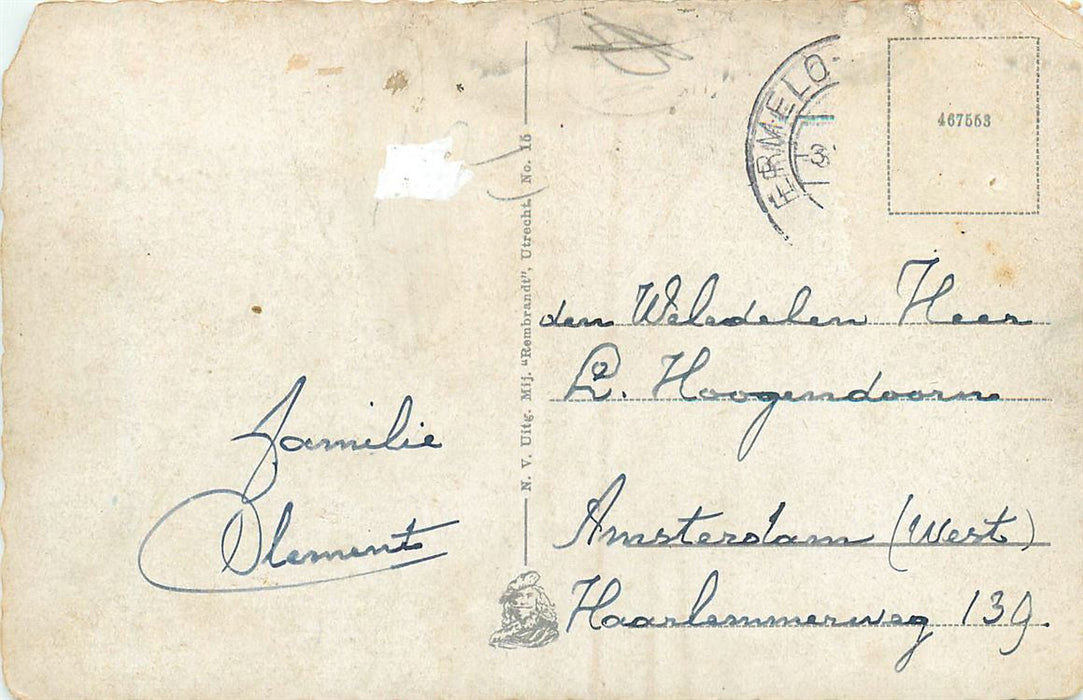 familie
Clement
N. V. Uitg. Mij. "Rembrandt", Utrecht. No. 15
ERMELO-
3.
467553
den Weledelen Heer
L. Hoogendoorn
Amsterdam (West)
Haarlemmerweg 139.